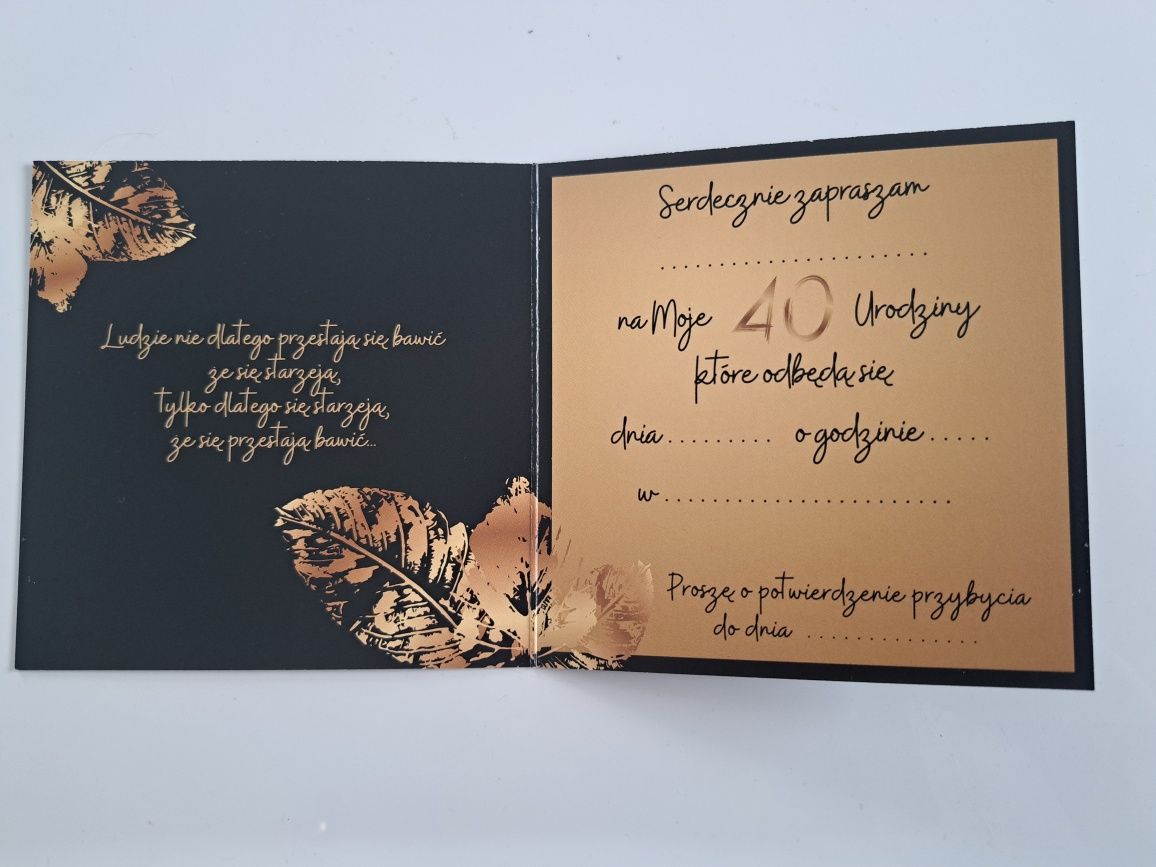 Ludzie nie dlatego przestają się bawić
że się starzeją,
tylko dlatego się starzeją,
że się przestają bawić...
Serdecznie zapraszam
......................
na Moje 40 Urodziny
które odbędą się
dnia ......... o godzinie .....
w ........................
Proszę o potwierdzenie przybycia
do dnia ..............